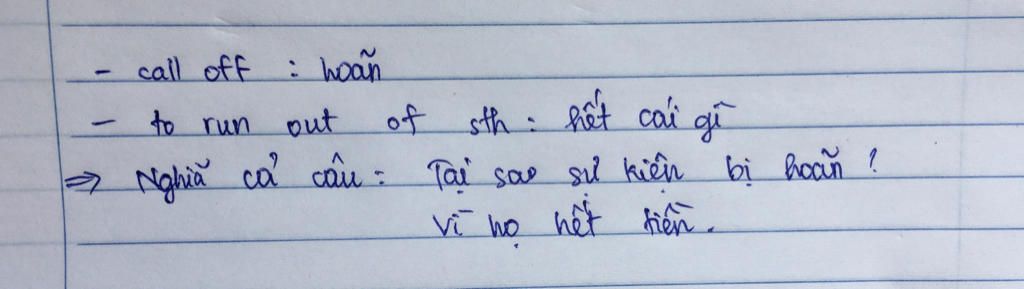 - call off : hoãn
- to run out of sth : hết cái gì
=> Nghiã cả câu : Tại sao sự kiện bị hoãn ?
Vì họ hết tiền.